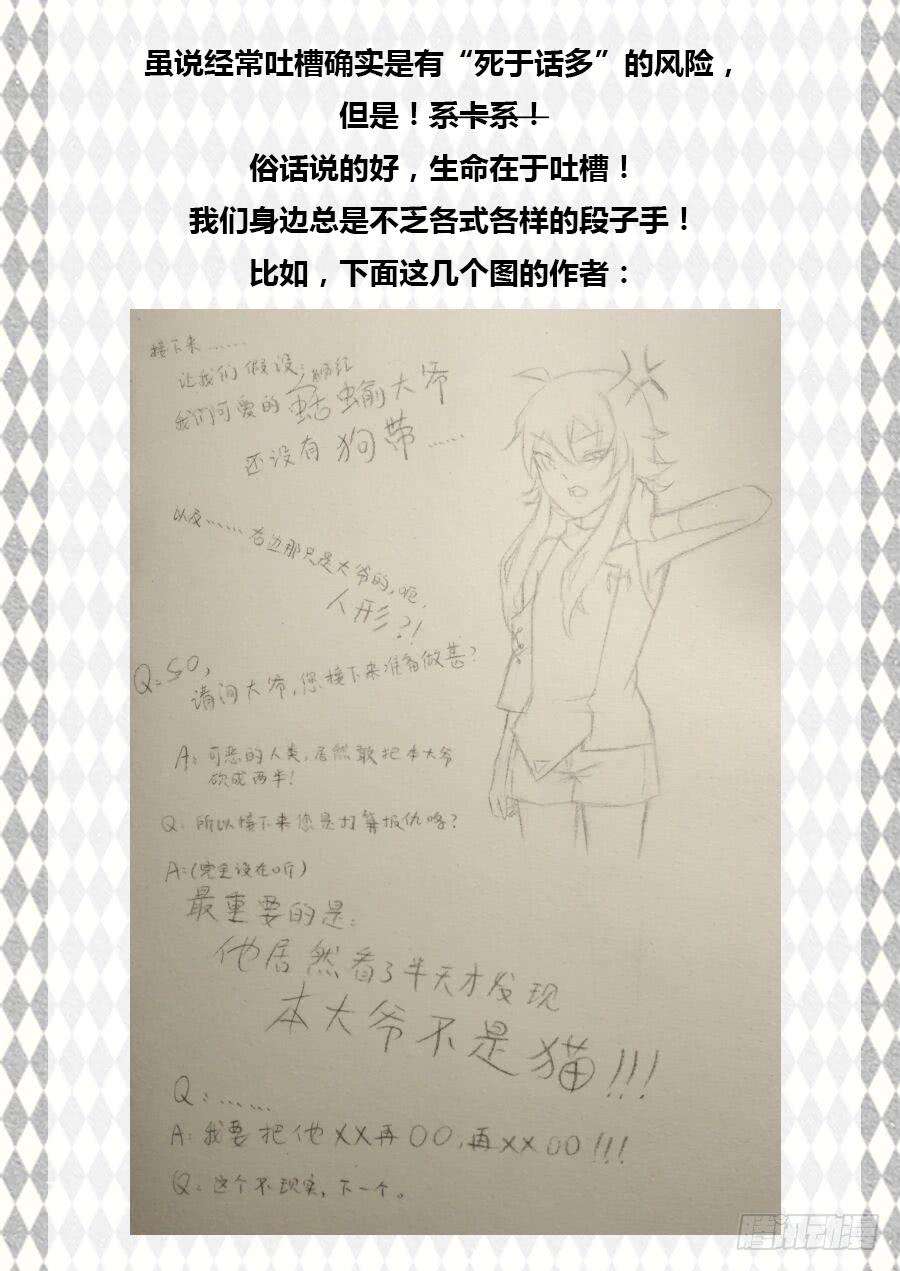 虽说经常吐槽确实是有“死于话多”的风险，
但是！系卡系！
俗话说的好，生命在于吐槽！
我们身边总是不乏各式各样的段子手！
比如，下面这几个图的作者：
接下来……
让我们假设，
我们可爱的蛞蝓大爷
还没有狗带……
以及……右边那只是大爷的，呃，
人形？！
Q：SO，
请问大爷，您接下来准备做甚？
A：可恶的人类，居然敢把本大爷
砍成两半！
Q：所以接下来您是打算报仇咯？
A：（完全没在听）
最重要的是：
他居然看了半天才发现
本大爷不是猫!!!
Q：……
A：我要把他XX再OO，再XXOO!!!
Q：这个不现实，下一个。
腾讯动漫